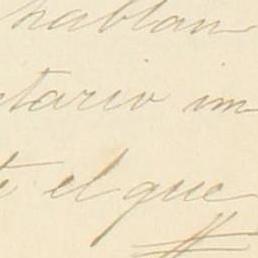 hablan
ntario im
te el que